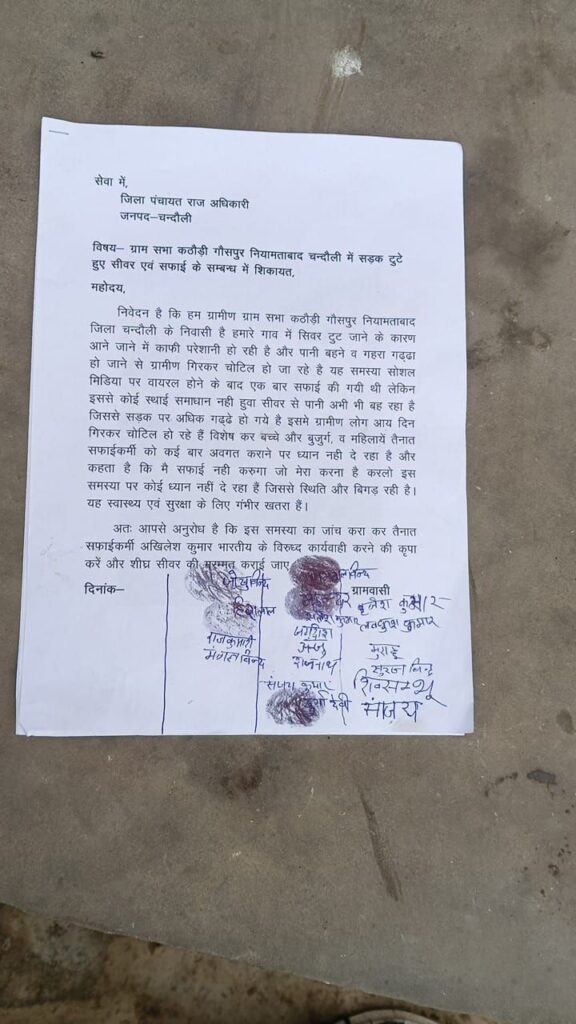 सेवा में,
जिला पंचायत राज अधिकारी
जनपद–चन्दौली
विषय– ग्राम सभा कठौड़ी गौसपुर नियामताबाद चन्दौली में सड़क टुटे
हुए सीवर एवं सफाई के सम्बन्ध में शिकायत,
महोदय,
निवेदन है कि हम ग्रामीण ग्राम सभा कठौड़ी गौसपुर नियामताबाद
जिला चन्दौली के निवासी है हमारे गाव में सिवर टुट जाने के कारण
आने जाने में काफी परेशानी हो रही है और पानी बहने व गहरा गढ्ढा
हो जाने से ग्रामीण गिरकर चोटिल हो जा रहे है यह समस्या सोशल
मिडिया पर वायरल होने के बाद एक बार सफाई की गयी थी लेकिन
इससे कोई स्थाई समाधान नही हुवा सीवर से पानी अभी भी बह रहा है
जिससे सड़क पर अधिक गढ्ढे हो गये है इसमे ग्रामीण लोग आय दिन
गिरकर चोटिल हो रहे हैं विशेष कर बच्चे और बुजुर्ग, व महिलायें तैनात
सफाईकर्मी को कई बार अवगत कराने पर ध्यान नही दे रहा है और
कहता है कि मै सफाई नही करुगा जो मेरा करना है करलो इस
समस्या पर कोई ध्यान नहीं दे रहा हैं जिससे स्थिति और बिगड़ रही है।
यह स्वास्थ्य एवं सुरक्षा के लिए गंभीर खतरा हैं।
अतः आपसे अनुरोध है कि इस समस्या का जांच करा कर तैनात
सफाईकर्मी अखिलेश कुमार भारतीय के विरुध्द कार्यवाही करने की कृपा
करें और शीघ्र सीवर की मरम्मत कराई जाए
दिनांक– ग्रामवासी
राजकुमारी
मंगलाविन्द
जगदिश
राजनाथ
संजय कुमार
देवी
संजय